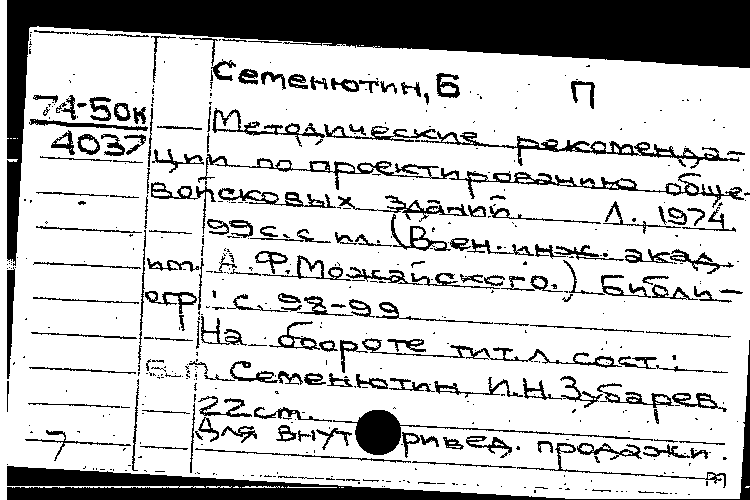 Семенютин, Б П
74-50к
4037
Методические рекоменда-
ции по проектированию обще-
войсковых зданий. Л., 1974.
99 с. с ил. (Воен. инж. акад.
им. А. Ф. Можайского.) Библи-
огр.: с. 98-99.
На обороте тит. л. сост.:
Б. П. Семенютин, И. Н. Зубарев.
22 см.
Для внут ривед. продажи.